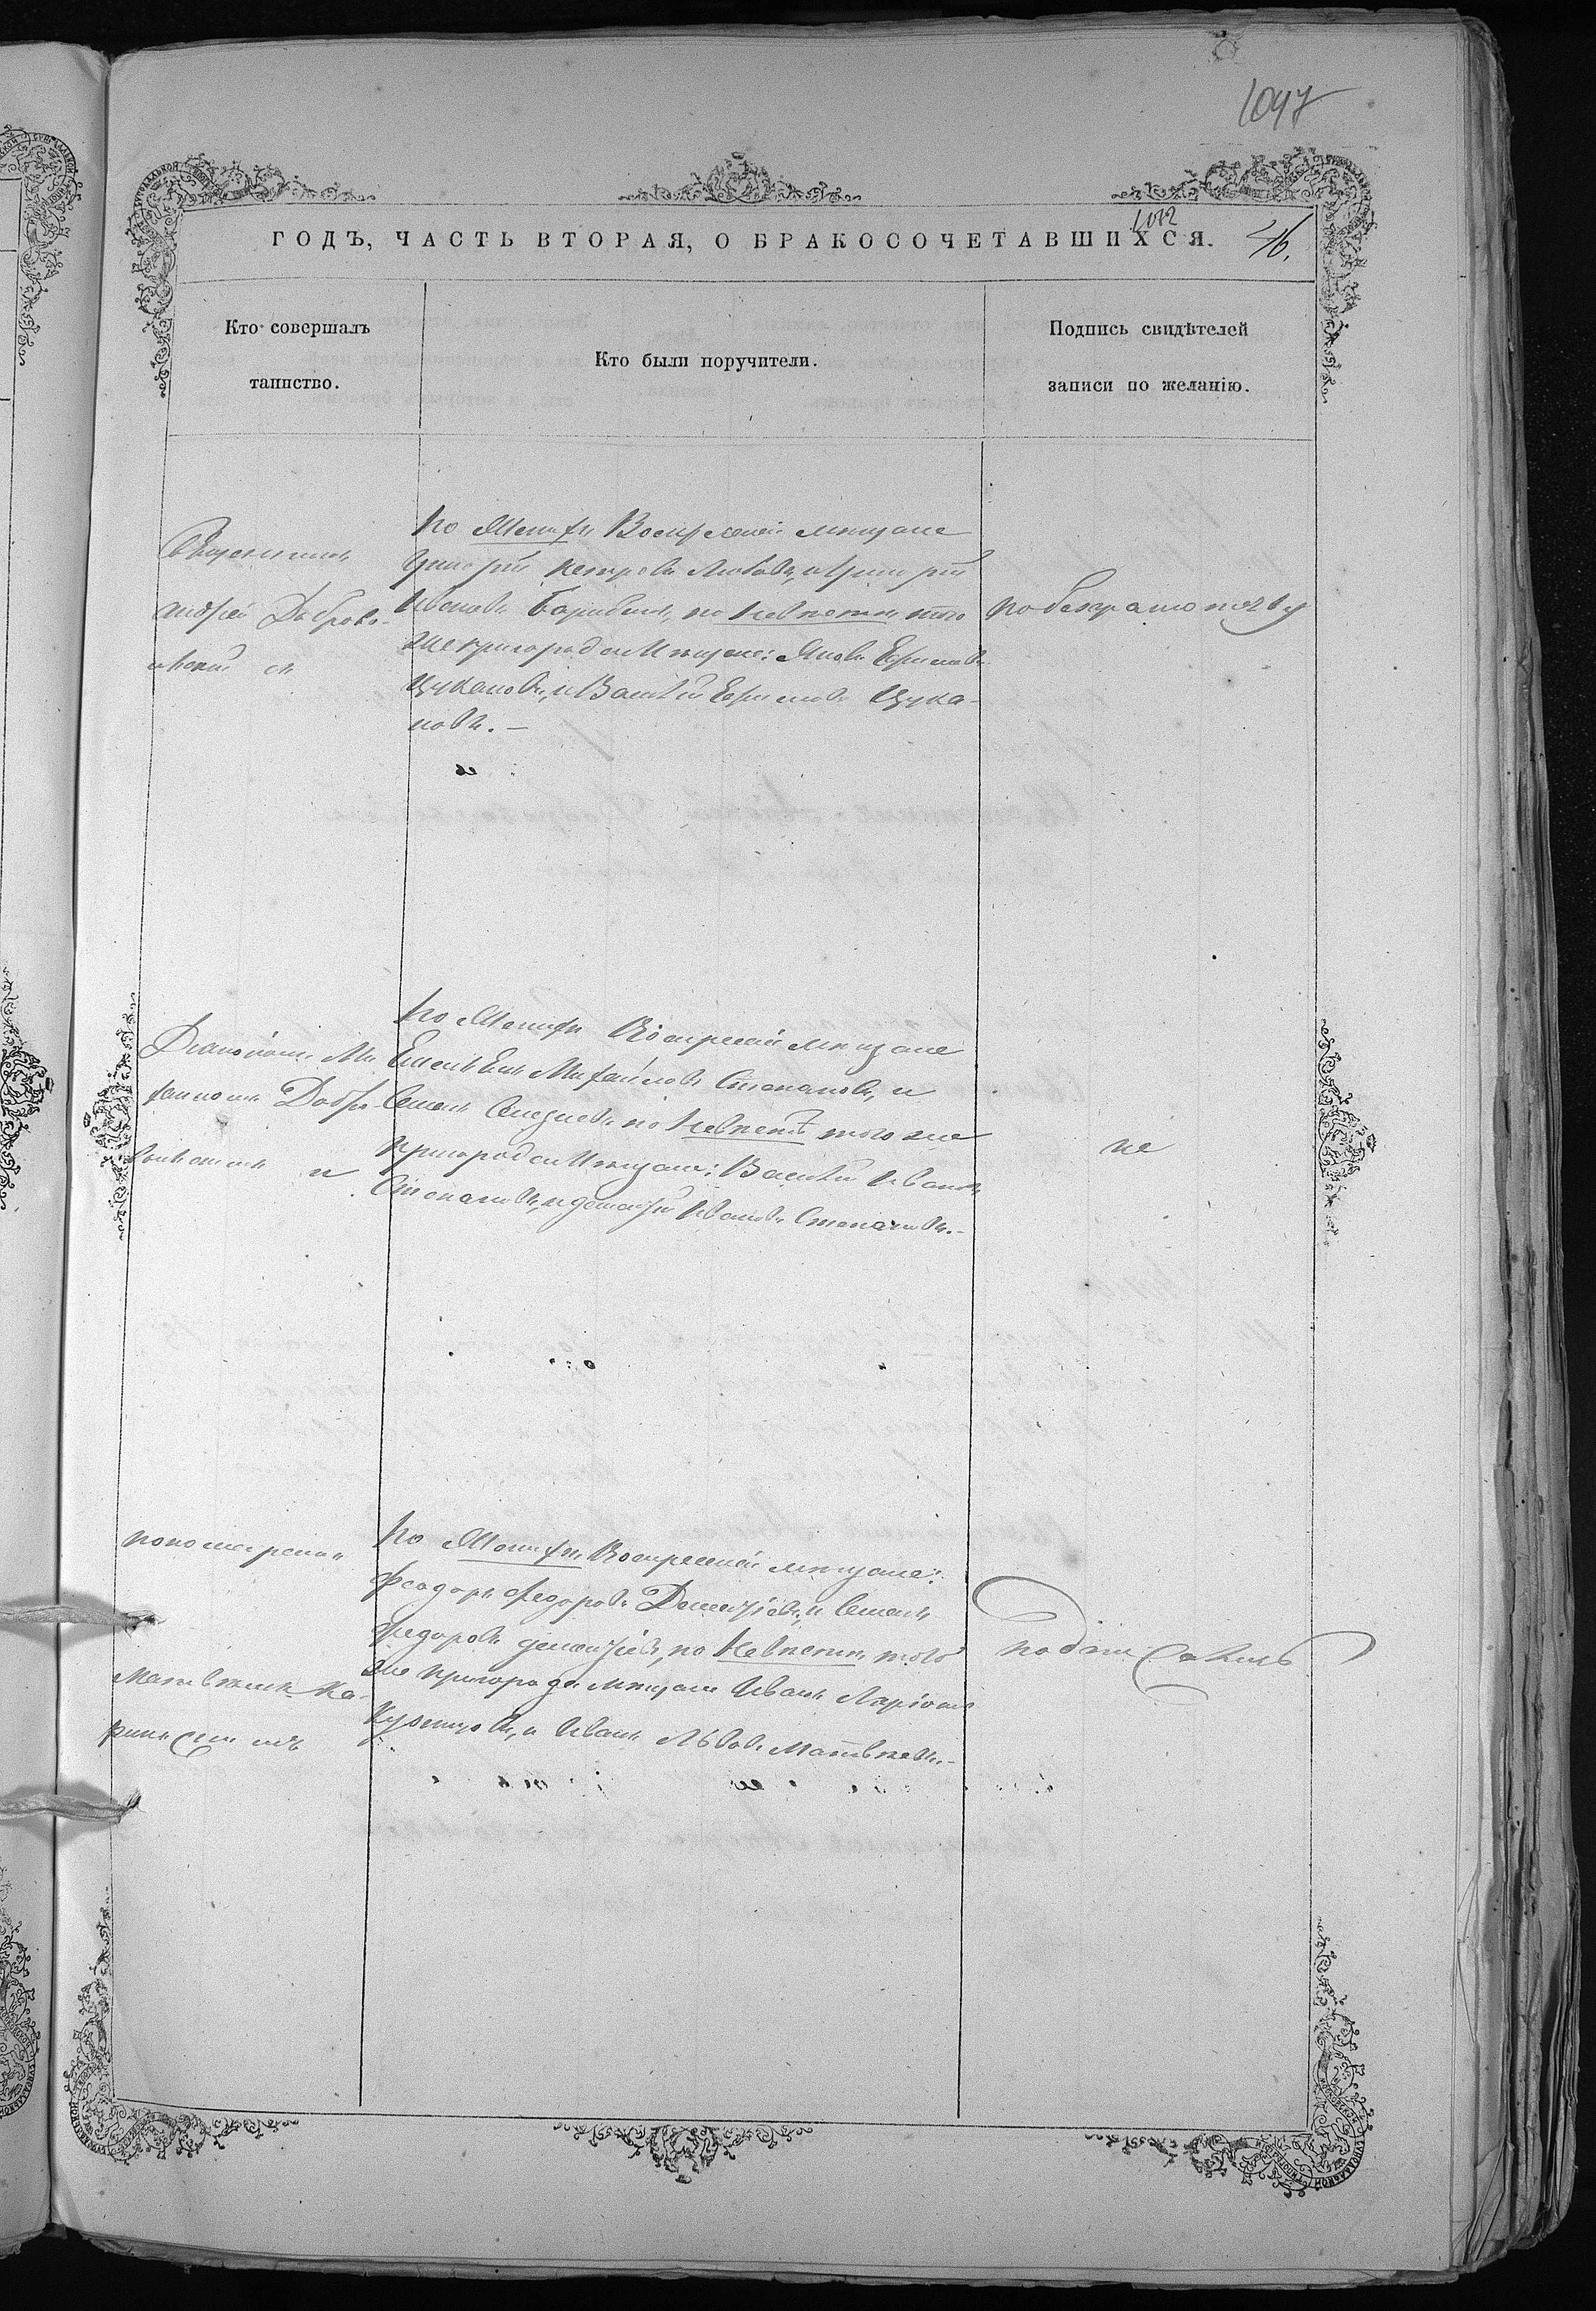 1047
1012
ГОДЪ, ЧАСТЬ ВТОРАЯ, О БРАКОСОЧЕТАВШИХСЯ. 46.
Кто совершалъ
таинство.
Кто были поручители.
Подпись свидѣтелей
записи по желанію.
Священникъ
Андрей Доброво-
льскій съ
По Женихѣ Воскресенскій мѣщане
Григорій Петровъ Любовъ, и Григорій
Ивановъ, по Невѣстѣ, того
же пригорода Мѣщане: Яковъ Ефимовъ
Цукановъ, и Василій Ефимовъ Цука-
новъ. —
по безграмотству
Діакономъ Ми-
хаиломъ Добро-
вольскимъ и
По Женихѣ Воскресенскій мѣщане
Емельянъ Михайловъ Степановъ, и
Семенъ Селезневъ, по Невѣстѣ того же
пригорода Мѣщане: Василій Ивановъ
Степановъ, и Дмитрій Ивановъ Степановъ. -
не
пономаремъ
Матвѣемъ Ка-
По Женихѣ Воскресенскій мѣщане:
Феодоръ Федоровъ Дементьевъ, и Семенъ
Федоровъ Дементьевъ, по Невѣстѣ, того
же пригорода мѣщане Иванъ Ларіоновъ
Кузнецовъ, и Иванъ Львовъ Матвѣевъ. -